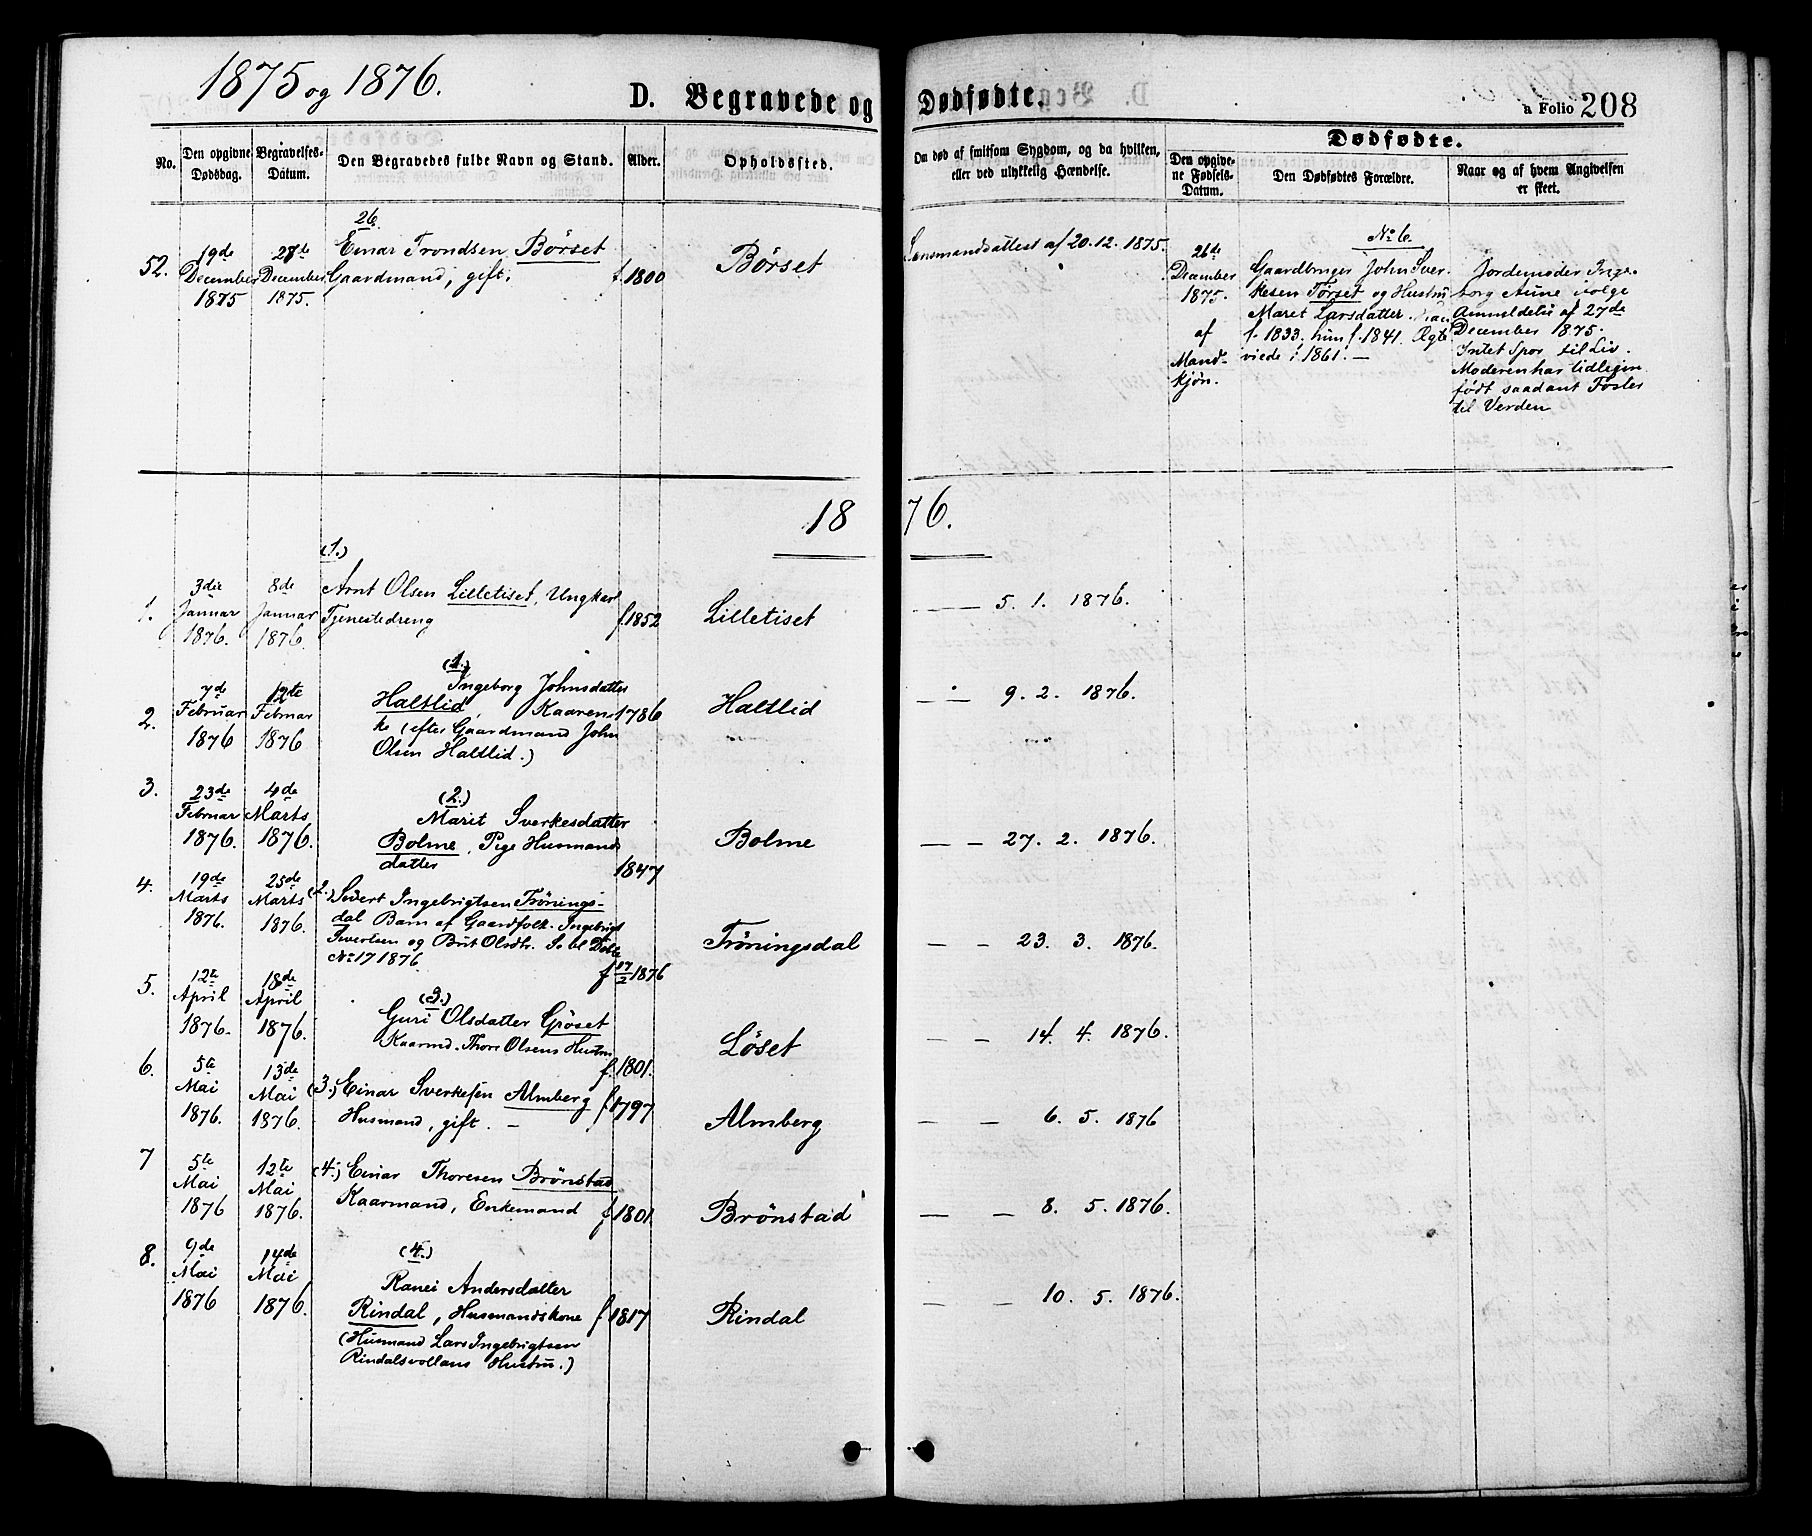 1875 og 1876.
D. Begravede og Dødfødte.
a Folio 208
No.
Den opgivne Dødsdag.
Begravelses-Datum.
Den Begravedes fulde Navn og Stand.
Alder.
Opholdssted.
Om død af smitsom Sygdom, og da hvilken,
eller ved ulykkelig Hændelse.
Dødfødte.
Den opgivne Fødsels-Datum.
Den Dødfødtes Forældre.
Naar og af hvem Angivelsen
er skeet.
26
52.
19de
December
1875
27de
December
1875.
Einar Trondsen Börset
Gaardmand, gift.
f. 1800
Börset
Lensmandsattest af 20.12.1875.
26de
December
1875.
af
Mand-
kjön.
No 6.
Gaardbruger John Sver-
kesen Törset og Hustru
Maret Larsdatter.
f. 1833, hun f. 1841. Ægte
viede i 1861. —
Jordemoder Inge-
borg Aune ifölge
Anmeldelse af 27de
December 1875.
Intet Spor til Liv.
Moderen har tidligere
födt saadant Foster
til Verden
1876.
(1.)
1.
3die
Januar
1876.
8de
Januar
1876.
Arnt Olsen Lilletiset, Ungkarl
Tjenestedreng
f. 1852
Lilletiset
— — 5. 1. 1876.
(1.)
2.
7de
Februar
1876
12te
Februar
1876
Ingeborg Johnsdatter
Haltlid, Kaaren-
ke (efter Gaardmand John
Olsen Haltlid.)
1786
Haltlid
— — 9. 2. 1876.
3.
23de
Februar
1876.
4de
Marts
1876.
(2.)
Marit Sverkesdatter
Bolme, Pige Husmands
datter
1847
Bolme
— — 27. 2. 1876.
4.
19de
Marts
1876.
25de
Marts
1876.
(2.) Sivert Ingebrigtsen Trönings-
dal Barn af Gaardfolk Ingebrigt
Sivertsen og Brit Olsdtr. S. bl. Döbte
No 17 1876.
f. 17/2 1876
Tröningsdal
— — 23. 3. 1876.
5.
12te
April
1876.
18de
April
1876.
(3.)
Guri Olsdatter Gröset
Kaarmd. Thore Olsens Hustru
f. 1801.
Löset
— — 14. 4. 1876.
6.
5te
Mai
1876.
13de
Mai
1876.
(3.) Einar Sverkesen Almberg
Husmand, gift. —
f. 1797
Almberg
— — 6. 5. 1876
7
5te
Mai
1876
12te
Mai
1876.
(4.) Einar Thoresen Brönstad
Kaarmand, Enkemand
f. 1801.
Brönstad
— — 8. 5. 1876.
8.
9de
Mai
1876
14de
Mai
1876.
(4.)
Ranei Andersdatter
Rindal, Husmandskone
(Husmand Lars Ingebrigtsen
Rindalsvollans Hustru.)
f. 1817
Rindal
— — 10. 5. 1876.